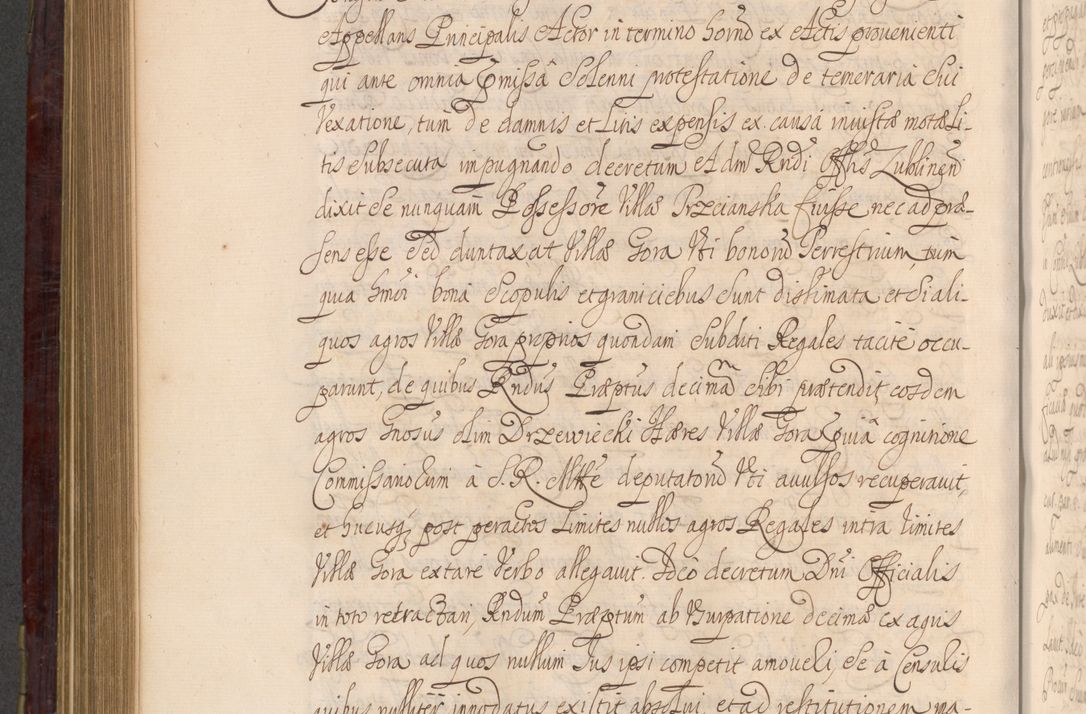 Appellans Principalis Actor in termino hornd ex Actis provenienti
qui ante omnia pmissâ Solenni protestatione de temeraria sui
Vexatione, tum de damnis et Litis expensis ex causa iniustæ motæ Li-
tis subsecuta impugnando decretum Adm Rndi Offlis Lublinen
dixit se nunquam Possessore Villæ Przecianska fuisse nec ad præ-
sens esse Sed duntaxat Villæ Gora Uti bonord Terrestrium, tum
quia hmoi bona Scopulis et graniciebus sunt distimata et si ali-
quos agros Villæ Gora proprios quondam Subditi Regales tacite occu-
parunt, de quibus Rndus Præptus decimã sibi prætendit eosdem
agros Gnosus olim Drzewiecki Hæres Villæ Gora pviâ cognitione
Commissariorum à S. R. Mtte deputatord Uti avulsos recuperavit,
et hucusq post peractos limites nullos agros Regales intra limites
Villæ Gora extare Verbo allegavit. Ideo decretum Dni Officialis
in toto retractari, Rndum Præptum ab Usurpatione decimæ ex agris
Villæ Gora ad quos nullum Jus ipsi competit amoveri, se à Censuris
quibus nulliter innodatus existit absolvi, et ad restitutionem ma-